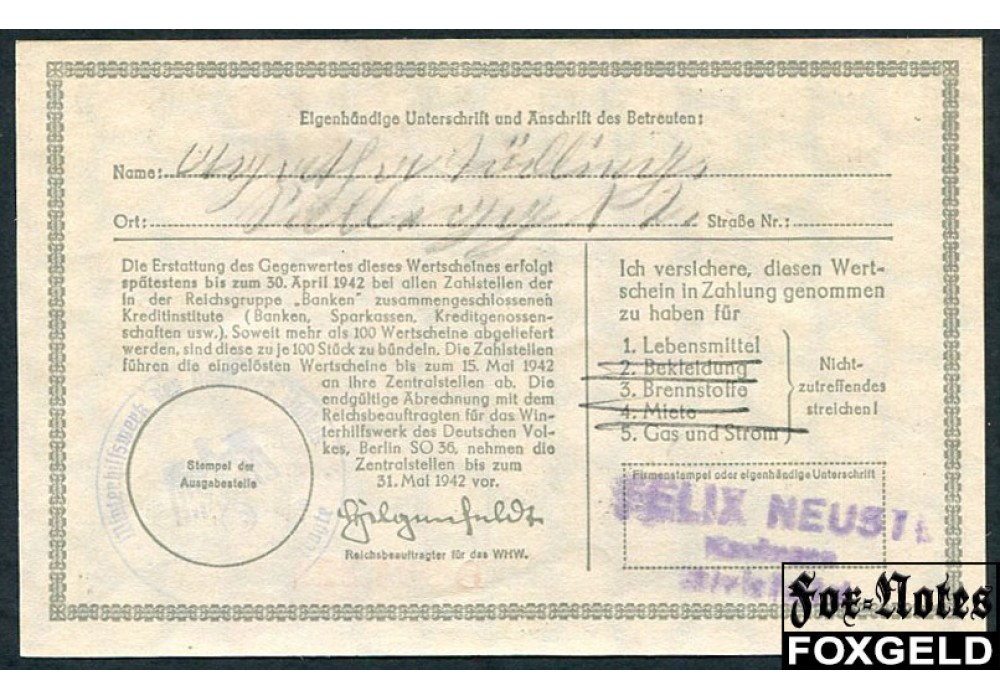 Eigenhändige Unterschrift und Anschrift des Betreuten:
Name:
Ort: Straße Nr.:
Die Erstattung des Gegenwertes dieses Wertscheines erfolgt
spätestens bis zum 30. April 1942 bei allen Zahlstellen der
in der Reichsgruppe „Banken" zusammengeschlossenen
Kreditinstitute (Banken, Sparkassen, Kreditgenossen-
schaften usw.). Soweit mehr als 100 Wertscheine abgeliefert
werden, sind diese zu je 100 Stück zu bündeln. Die Zahlstellen
führen die eingelösten Wertscheine bis zum 15. Mai 1942
an ihre Zentralstellen ab. Die
endgültige Abrechnung mit dem
Reichsbeauftragten für das Win-
terhilfswerk des Deutschen Vol-
kes, Berlin SO 36, nehmen die
Zentralstellen bis zum
31. Mai 1942 vor.
Hilgenfeldt
Reichsbeauftragter für das WHW.
Winterhilfswerk des
Stempel der
Ausgabestelle
Ich versichere, diesen Wert-
schein in Zahlung genommen
zu haben für
1. Lebensmittel
2. Bekleidung
3. Brennstoffe
4. Miete
5. Gas und Strom
Nicht-
zutreffendes
streichen!
Firmenstempel oder eigenhändige Unterschrift
FELIX NEUST
Kaufmann
Fox-Notes
FOXGELD